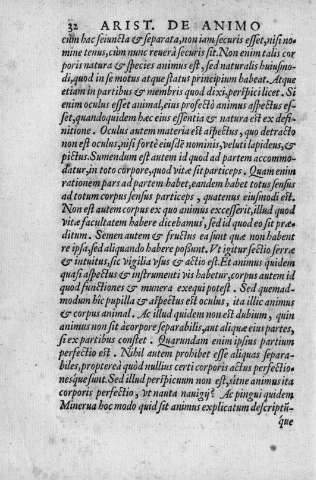 32 ARIST. DE ANIMO
cùm hac seiuncta & separata, non iam securis esset, nisi no-
mine tenus, cùm nunc reuera securis sit. Non enim talis cor
poris natura & species animus est, sed naturalis huiusmo-
di, quod in se motus atque status principium habeat. Atque
etiam in partibus & membris quod dixi, perspici licet. Si
enim oculus esset animal, eius profectò animus aspectus es-
set, quandoquidem hæc eius essentia & natura est ex defi-
nitione. Oculus autem materia est aspectus, quo detracto
non est oculus, nisi fortè eiusdē nominis, veluti lapideus, &
pictus. Sumendum est autem id quod ad partem accommo-
datur, in toto corpore, quod vitæ sit particeps. Quam enim
rationem pars ad partem habet, eandem habet totus sensus
ad totum corpus sensus particeps, quatenus eiusmodi est.
Non est autem corpus ex quo animus excesserit, illud quod
vitæ facultatem habere dicebamus, sed id quod eo sit præ-
ditum. Semen autem & fructus ea sunt quæ non habent
re ipsa, sed aliquando habere possunt. Vt igitur sectio serræ
& intuitus, sic vigilia vsus & actio est. Et animus quidem
quasi aspectus & instrumenti vis habetur, corpus autem id
quod functiones & munera exequi potest. Sed quemad-
modum hîc pupilla & aspectus est oculus, ita illic animus
& corpus animal. Ac illud quidem non est dubium, quin
animus non sit à corpore separabilis, aut aliquæ eius partes,
si ex partibus constet. Quarundam enim ipsius partium
perfectio est. Nihil autem prohibet esse aliquas separa-
biles, propterea quòd nullius certi corporis actus perfectio-
nesque sunt. Sed illud perspicuum non est, sitne animus ita
corporis perfectio, vt nauta nauigij. Ac pingui quidem
Minerua hoc modo quid sit animus explicatum descriptū-
que